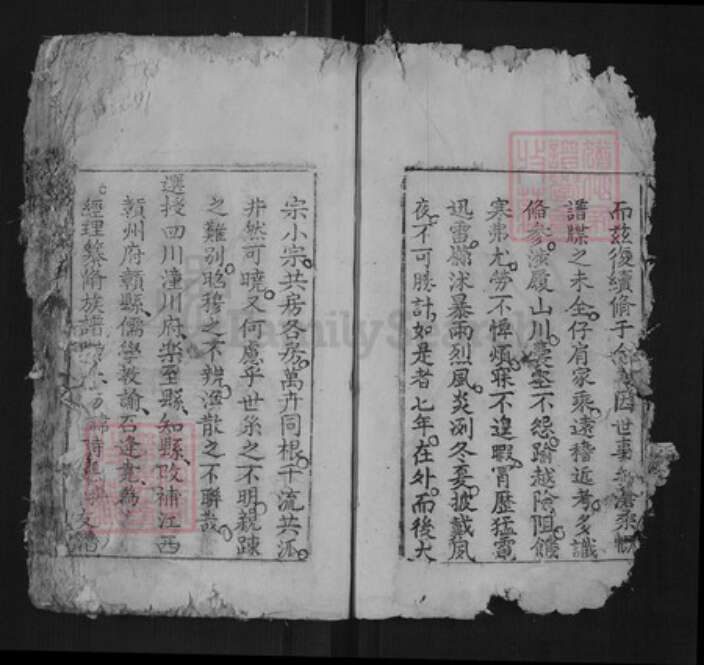 而茲復續脩于
譜牒之未全仔肩家乘遠稽近考多識
脩參涉履山川憂墾不怨踰越險阻餱
寒弗尤勞不憚煩寐不遑暇冒歷猛電
迅雷滂沭暴雨烈風炎冽冬夏披戴風
夜不可勝計如是者七年在外而後大
宗小宗共房各房萬卉同根千流共派
非然可曉又何慮乎世系之不明親踈
之難別昭穆之不辨渙散之不聯哉
選授四川潼川府樂至縣知縣改補江西
贛州府贛縣儒學教諭石逢堯為
經理纂脩族譜
FamilySearch